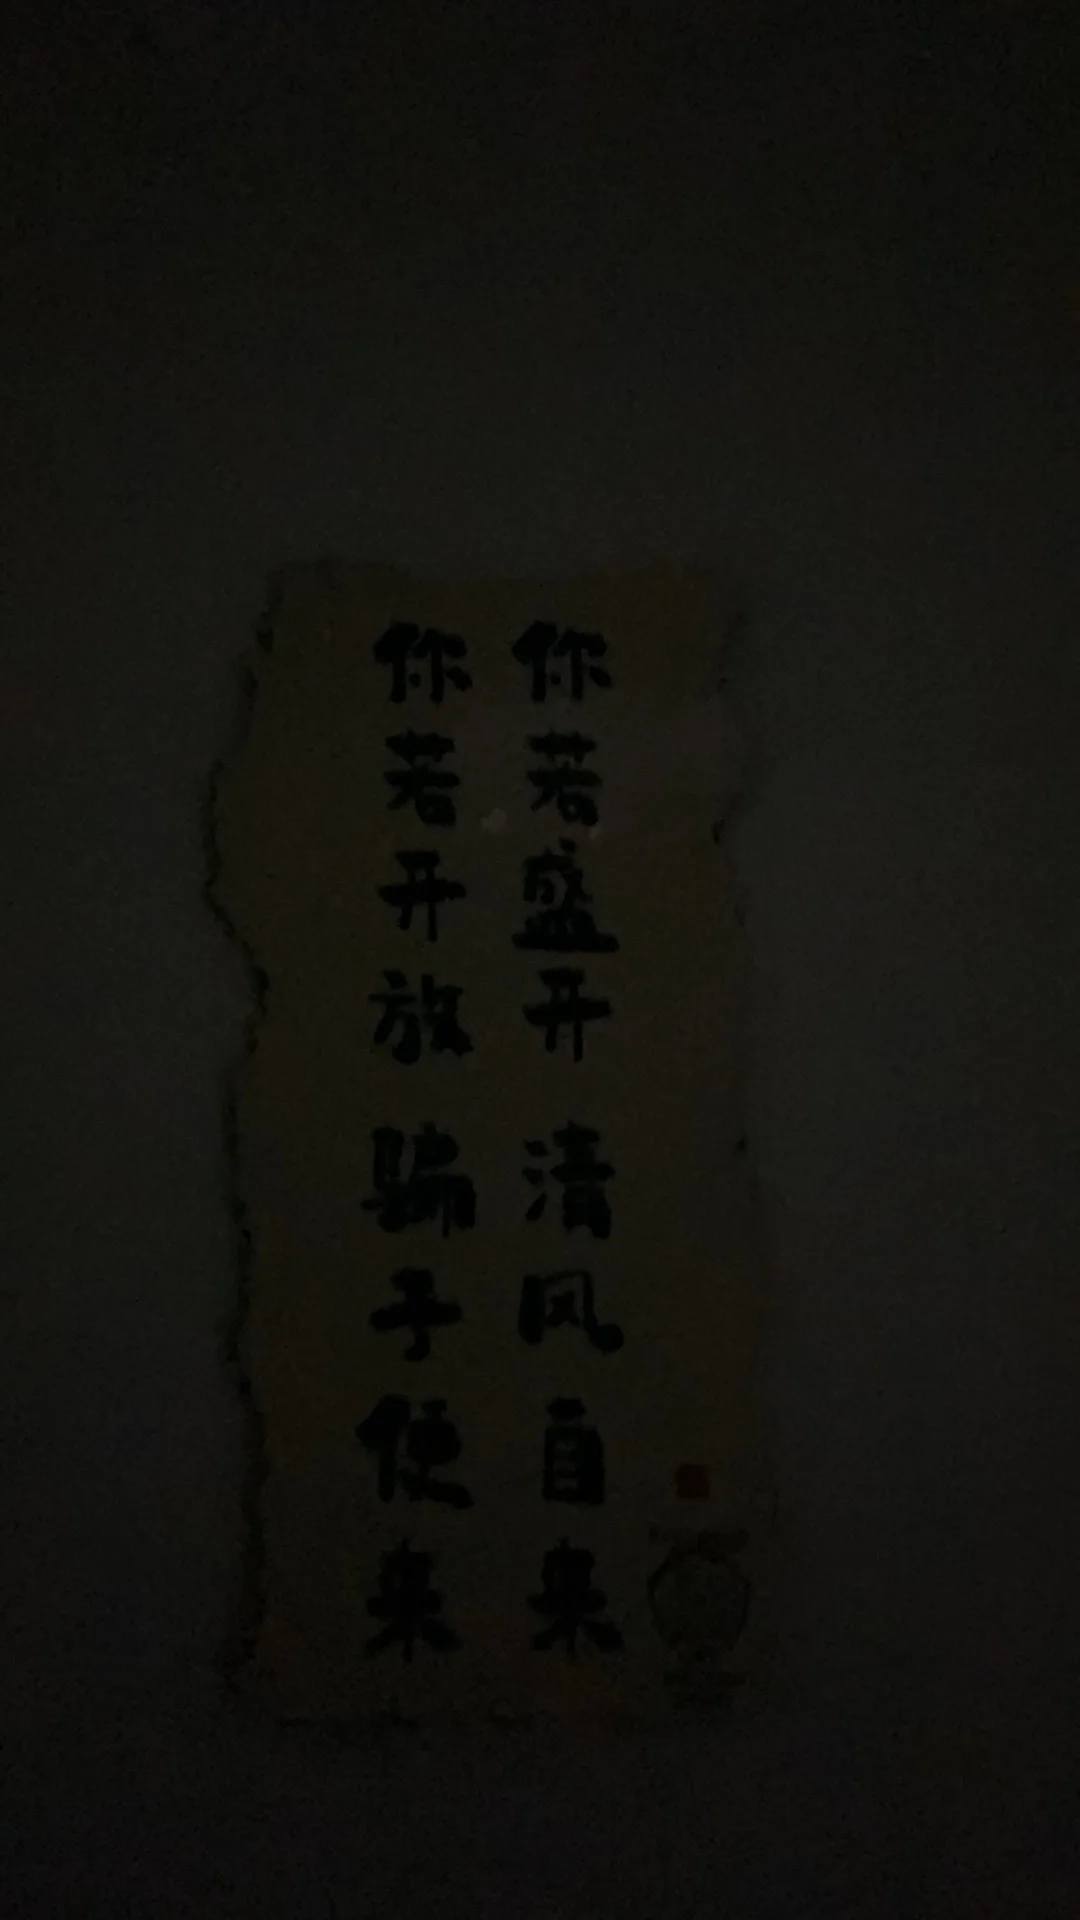 你若盛开 清风自来
你若开放 骗子便来